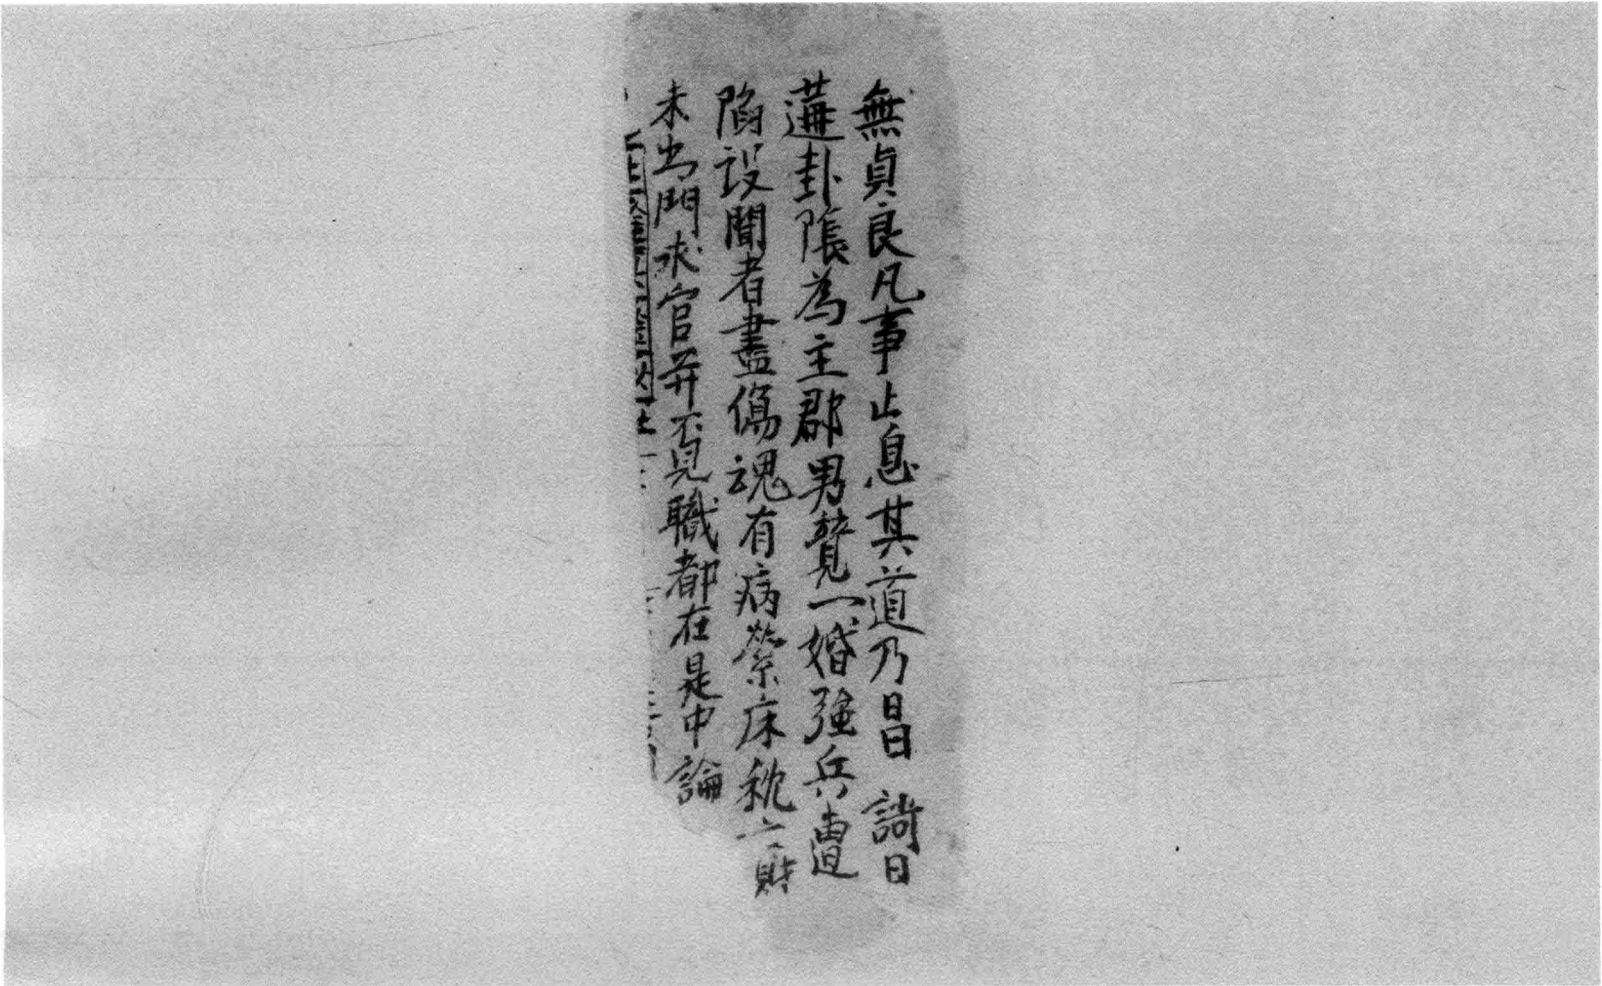 無貞良凡事止息其道乃昌 詩曰
遘卦張為主郡男覽一婚強兵遭
陷設聞者盡傷魂有病縈床枕亡財
未出門求官并不見職都在是中論